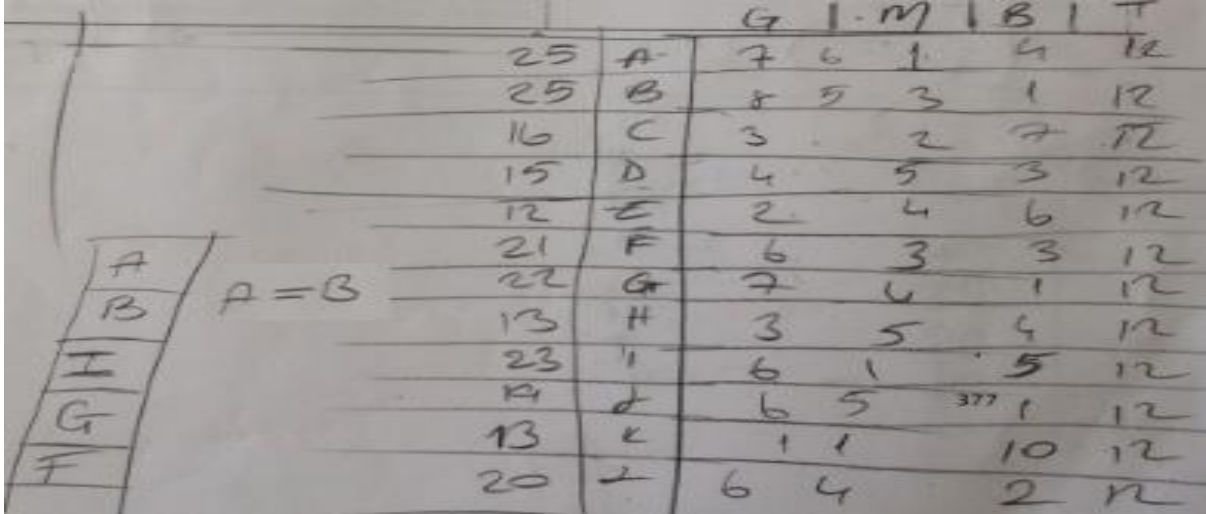 G | M | B | T
25 A 7 6 1 4 12
25 B 8 5 3 1 12
16 C 3 2 7 12
15 D 4 5 3 12
12 E 2 4 6 12
21 F 6 3 3 12
22 G 7 4 1 12
13 H 3 5 4 12
23 I 6 1 5 12
19 J 6 5 377 1 12
13 K 1 1 10 12
20 L 6 4 2 12
A
B
I
G
F
A = B